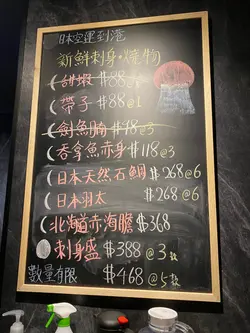 日本空運到港
新鮮刺身・燒物
甜蝦 $88@
帶子 $88@1
劍魚腩 $48@3
吞拿魚赤身 $118@3
日本天然石鯛 $268@6
日本羽太 $268@6
北海道赤海膽 $368
刺身盛 $388@3款
數量有限 $468@5款